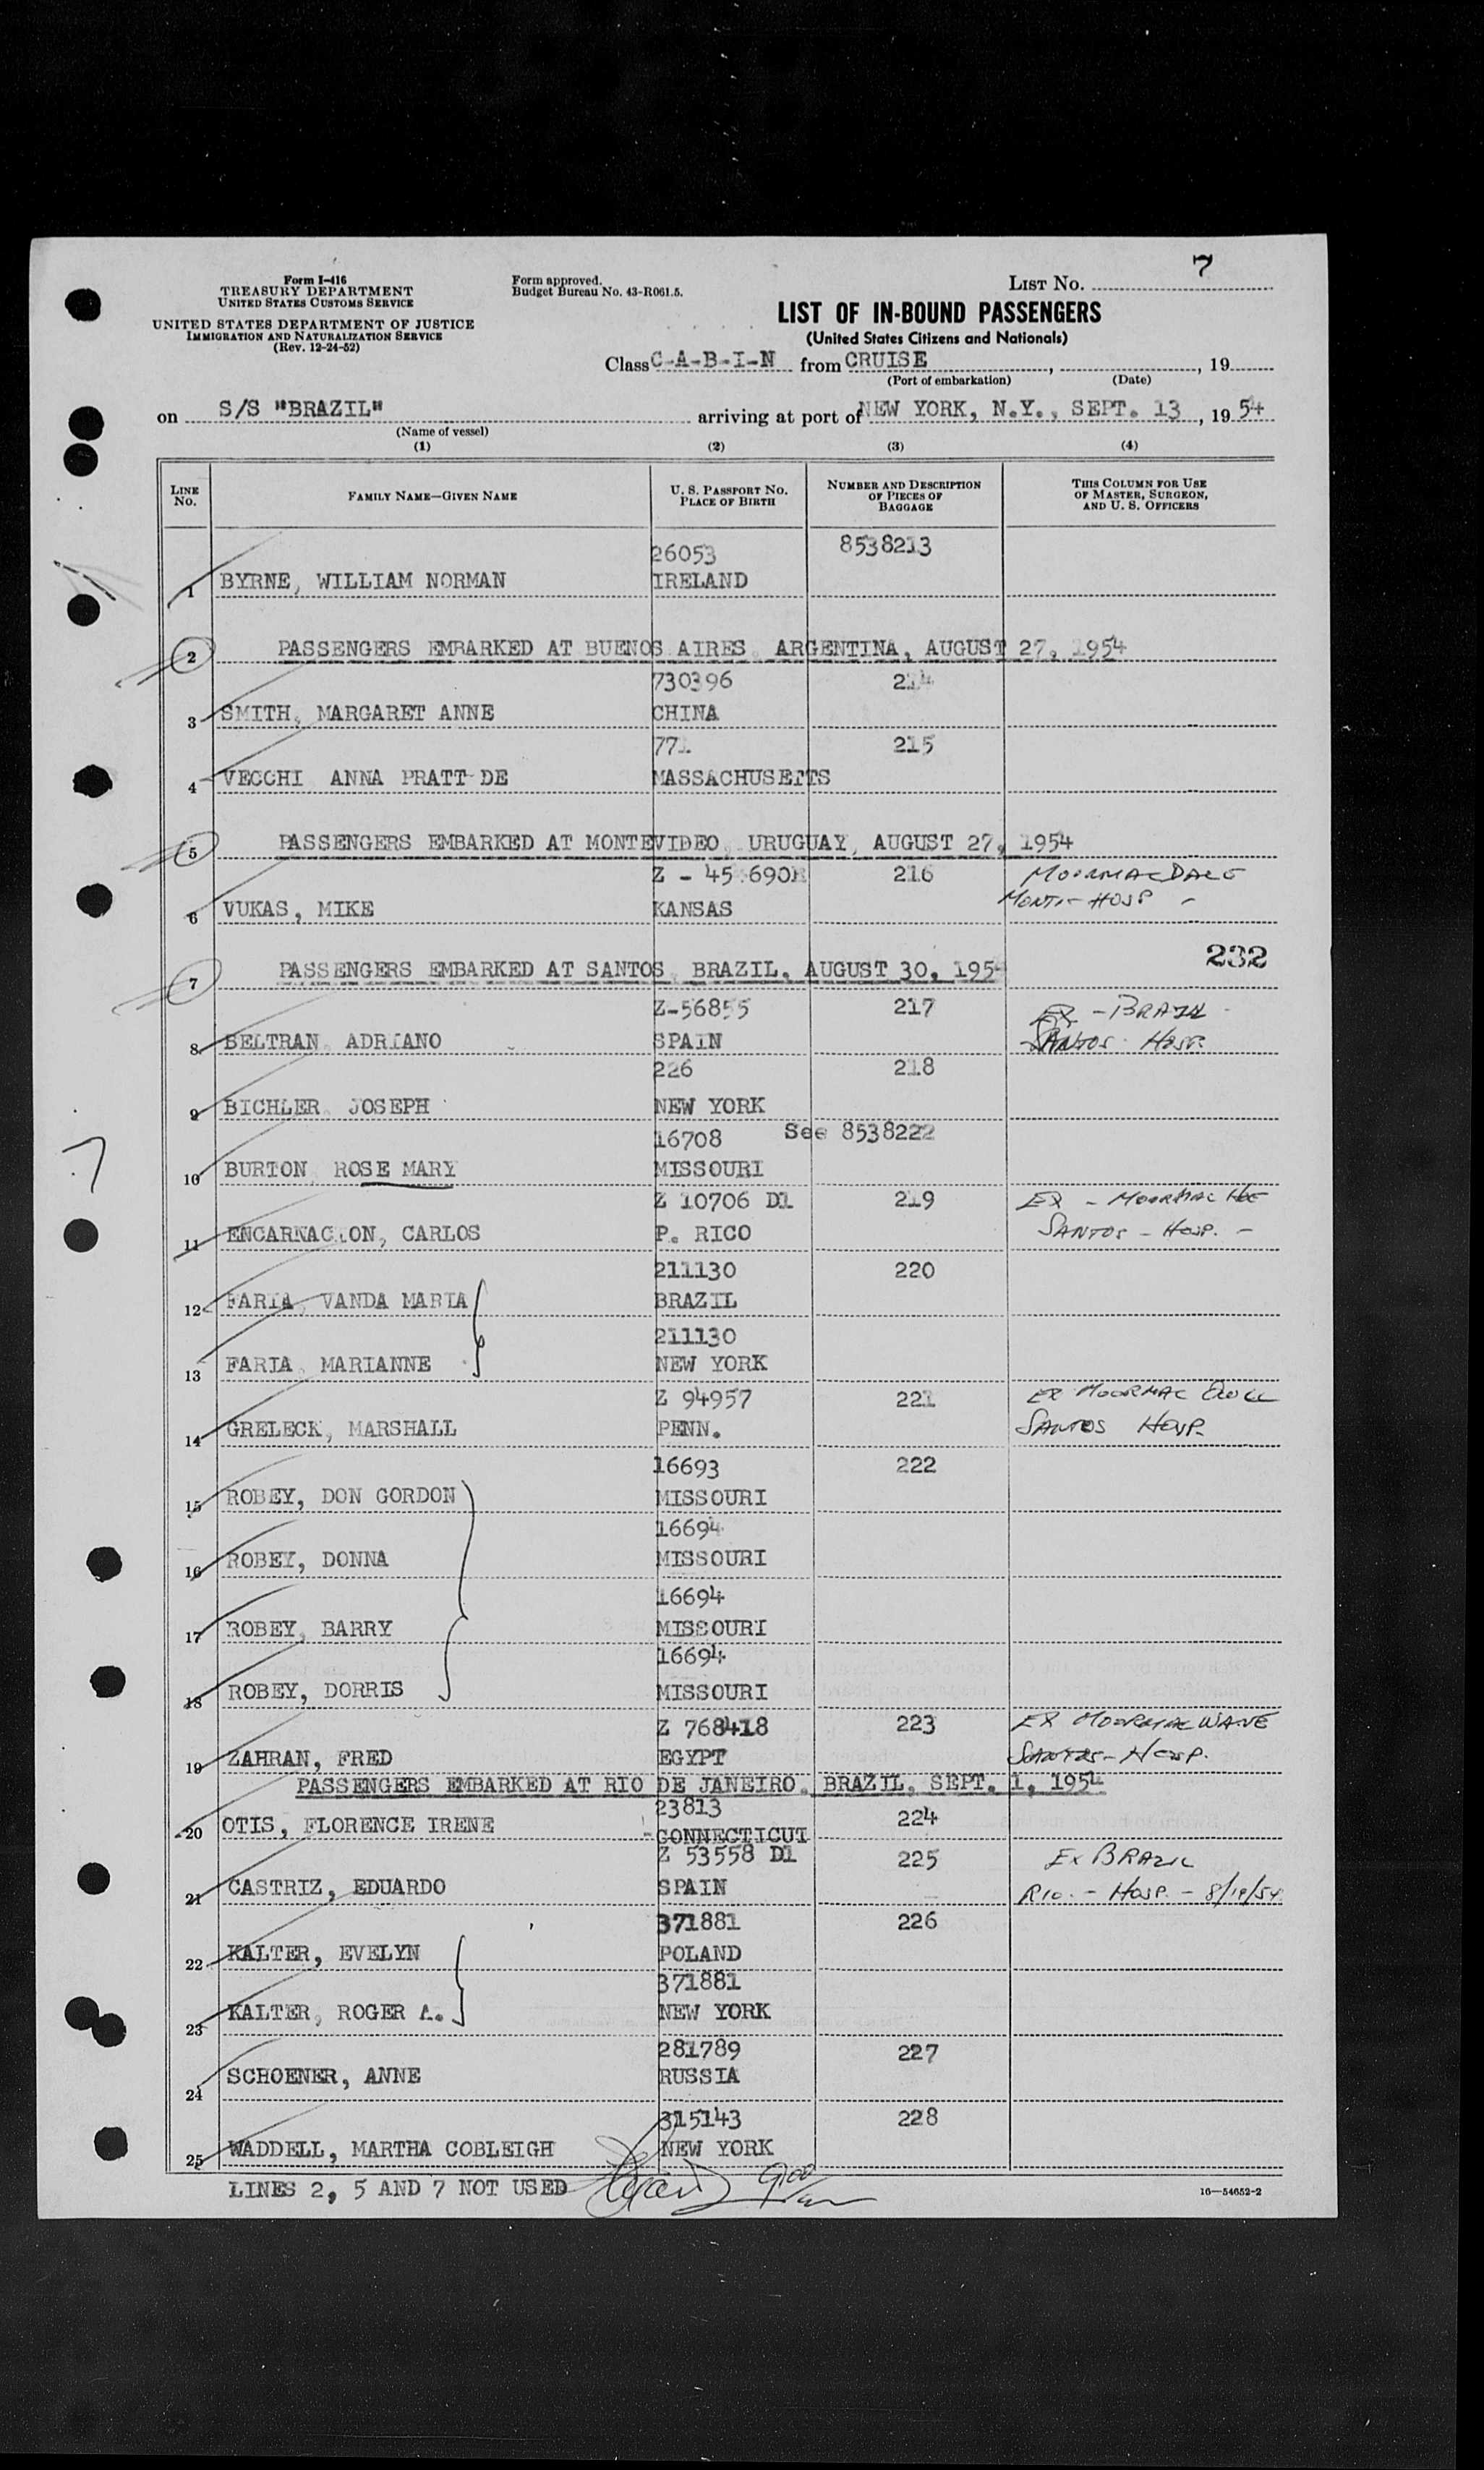 7
Form I-416
TREASURY DEPARTMENT
UNITED STATES CUSTOMS SERVICE
UNITED STATES DEPARTMENT OF JUSTICE
IMMIGRATION AND NATURALIZATION SERVICE
(Rev. 12-24-52)
Form approved.
Budget Bureau No. 43-R061.5.
LIST No.
LIST OF IN-BOUND PASSENGERS
(United States Citizens and Nationals)
Class C-A-B-I-N from CRUISE , , 19
(Port of embarkation) (Date)
on S/S "BRAZIL" arriving at port of NEW YORK, N.Y., SEPT. 13, 1954
(Name of vessel)
(1) (2) (3) (4)
LINE No. FAMILY NAME—GIVEN NAME U. S. PASSPORT NO. PLACE OF BIRTH NUMBER AND DESCRIPTION OF PIECES OF BAGGAGE THIS COLUMN FOR USE OF MASTER, SURGEON, AND U. S. OFFICERS
26053 8538213
1 BYRNE, WILLIAM NORMAN IRELAND
2 PASSENGERS EMBARKED AT BUENOS AIRES, ARGENTINA, AUGUST 27, 1954
730396 214
3 SMITH, MARGARET ANNE CHINA
771 215
4 VECCHI ANNA PRATT DE MASSACHUSETTS
5 PASSENGERS EMBARKED AT MONTEVIDEO, URUGUAY, AUGUST 27, 1954
Z - 45 690 216 MOORMACDALE
6 VUKAS, MIKE KANSAS MONT- HOSP -
232
7 PASSENGERS EMBARKED AT SANTOS, BRAZIL, AUGUST 30, 1954
Z-56855 217 EX - BRAZIL
8 BELTRAN, ADRIANO SPAIN SANTOS HOSP.
226 218
9 BICHLER JOSEPH NEW YORK
16708 See 8538222
10 BURTON ROSE MARY MISSOURI
Z 10706 D1 219 EX - MOORMAC
11 ENCARNACION, CARLOS P. RICO SANTOS - HOSP. -
211130 220
12 FARIA, VANDA MARIA BRAZIL
211130
13 FARIA, MARIANNE NEW YORK
Z 94957 221 EX MOORMAC
14 GRELECK, MARSHALL PENN. SANTOS HOSP.
16693 222
15 ROBEY, DON GORDON MISSOURI
16694
16 ROBEY, DONNA MISSOURI
16694
17 ROBEY, BARRY MISSOURI
16694
18 ROBEY, DORRIS MISSOURI
Z 768418 223 EX MOORMACWAVE
19 ZAHRAN, FRED EGYPT SANTOS - HOSP.
PASSENGERS EMBARKED AT RIO DE JANEIRO, BRAZIL, SEPT. 1, 1954
23813
20 OTIS, FLORENCE IRENE CONNECTICUT 224
Z 53558 D1 225 EX BRAZIL
21 CASTRIZ, EDUARDO SPAIN RIO. - HOSP. - 8/19/54
371881 226
22 KALTER, EVELYN POLAND
371881
23 KALTER, ROGER A. NEW YORK
281789 227
24 SCHOENER, ANNE RUSSIA
315143 228
25 WADDELL, MARTHA COBLEIGH NEW YORK
LINES 2, 5 AND 7 NOT USED
16—54652-2